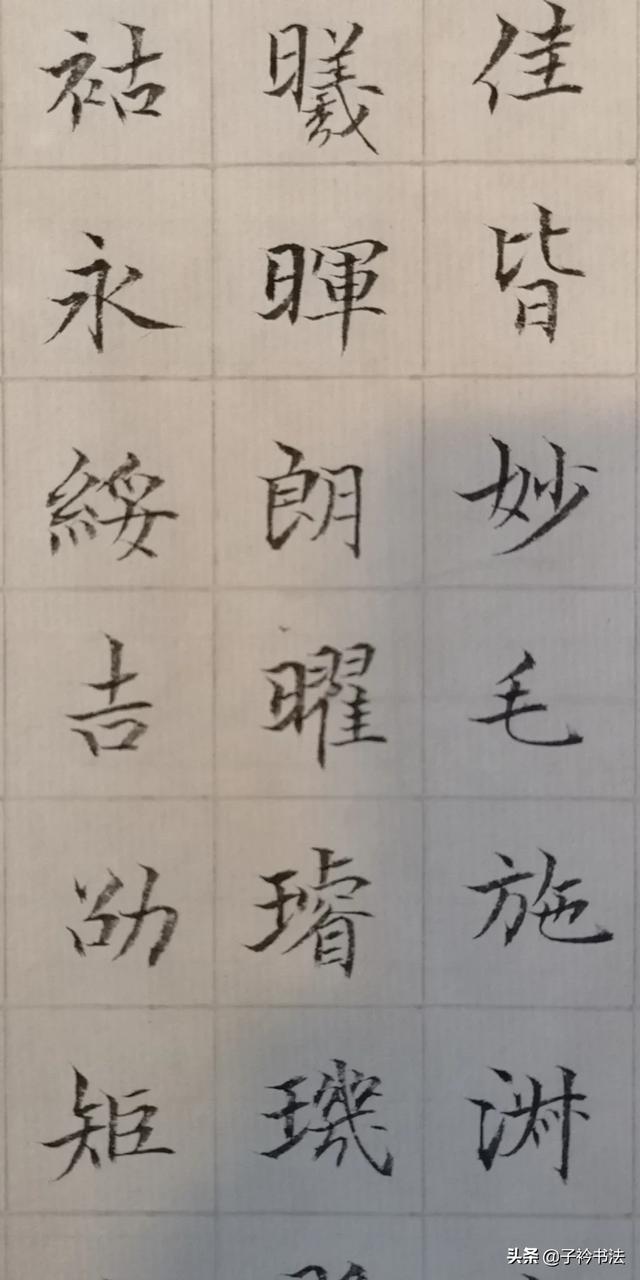 佳皆妙毛施淑
曦暉朗曜璿璣
祜永綏吉劭矩
头条 @子衿书法